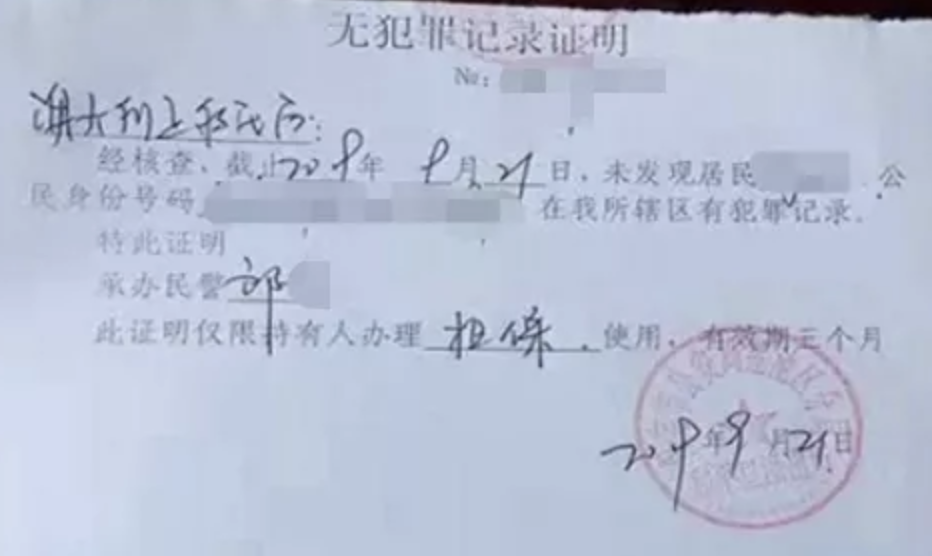 无犯罪记录证明
№:
澳大利亚移民局:
经核查、截止2019年9月21日、未发现居民 公
民身份号码 在我所辖区有犯罪记录.
特此证明
承办民警 郭
此证明仅限持有人办理担保.使用、有效期三个月
2019年9月21日